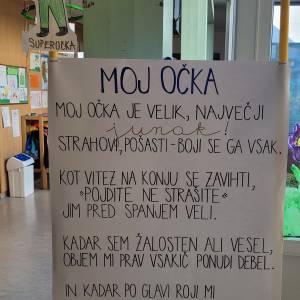 SUPEROČKA
MOJ OČKA
MOJ OČKA JE VELIK, NAJVEČJI
junak!
STRAHOVI, POŠASTI - BOJI SE GA VSAK.
KOT VITEZ NA KONJU SE ZAVIHTI,
"POJDITE NE STRAŠITE"
JIM PRED SPANJEM VELI.
KADAR SEM ŽALOSTEN ALI VESEL,
OBJEM MI PRAV VSAKIČ PONUDI DEBEL.
IN KADAR PO GLAVI ROJI MI